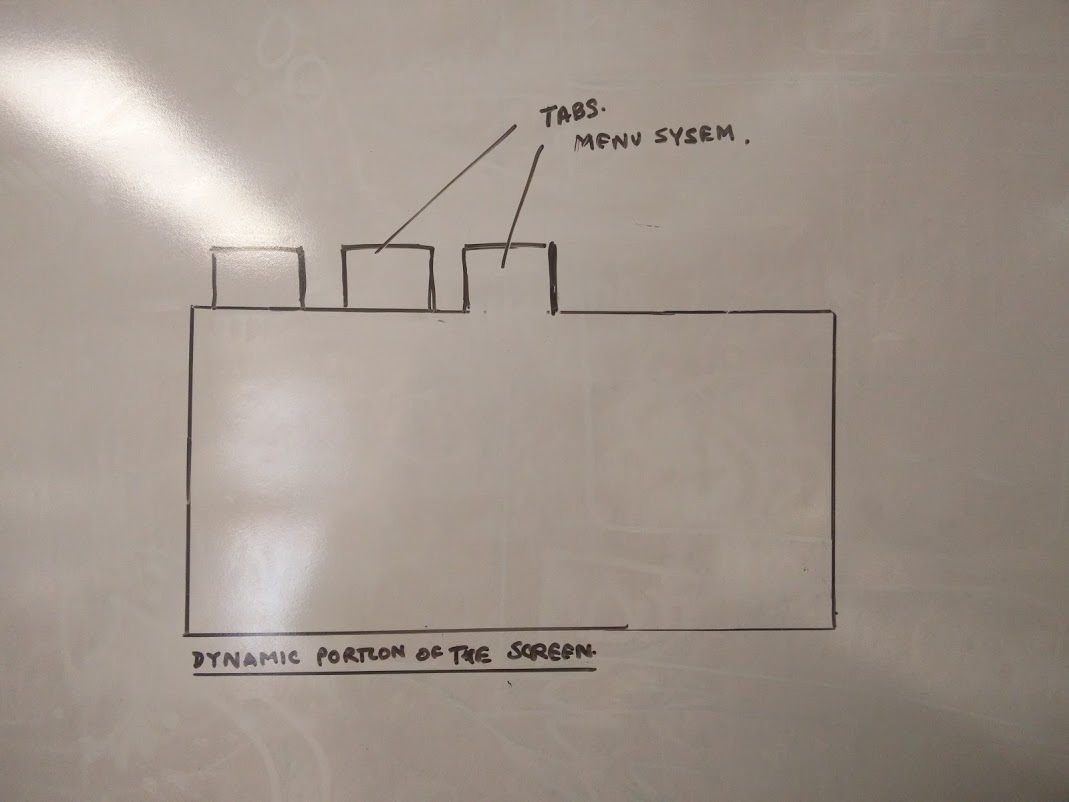 TABS.
MENU SYSEM.
DYNAMIC PORTION OF THE SCREEN.